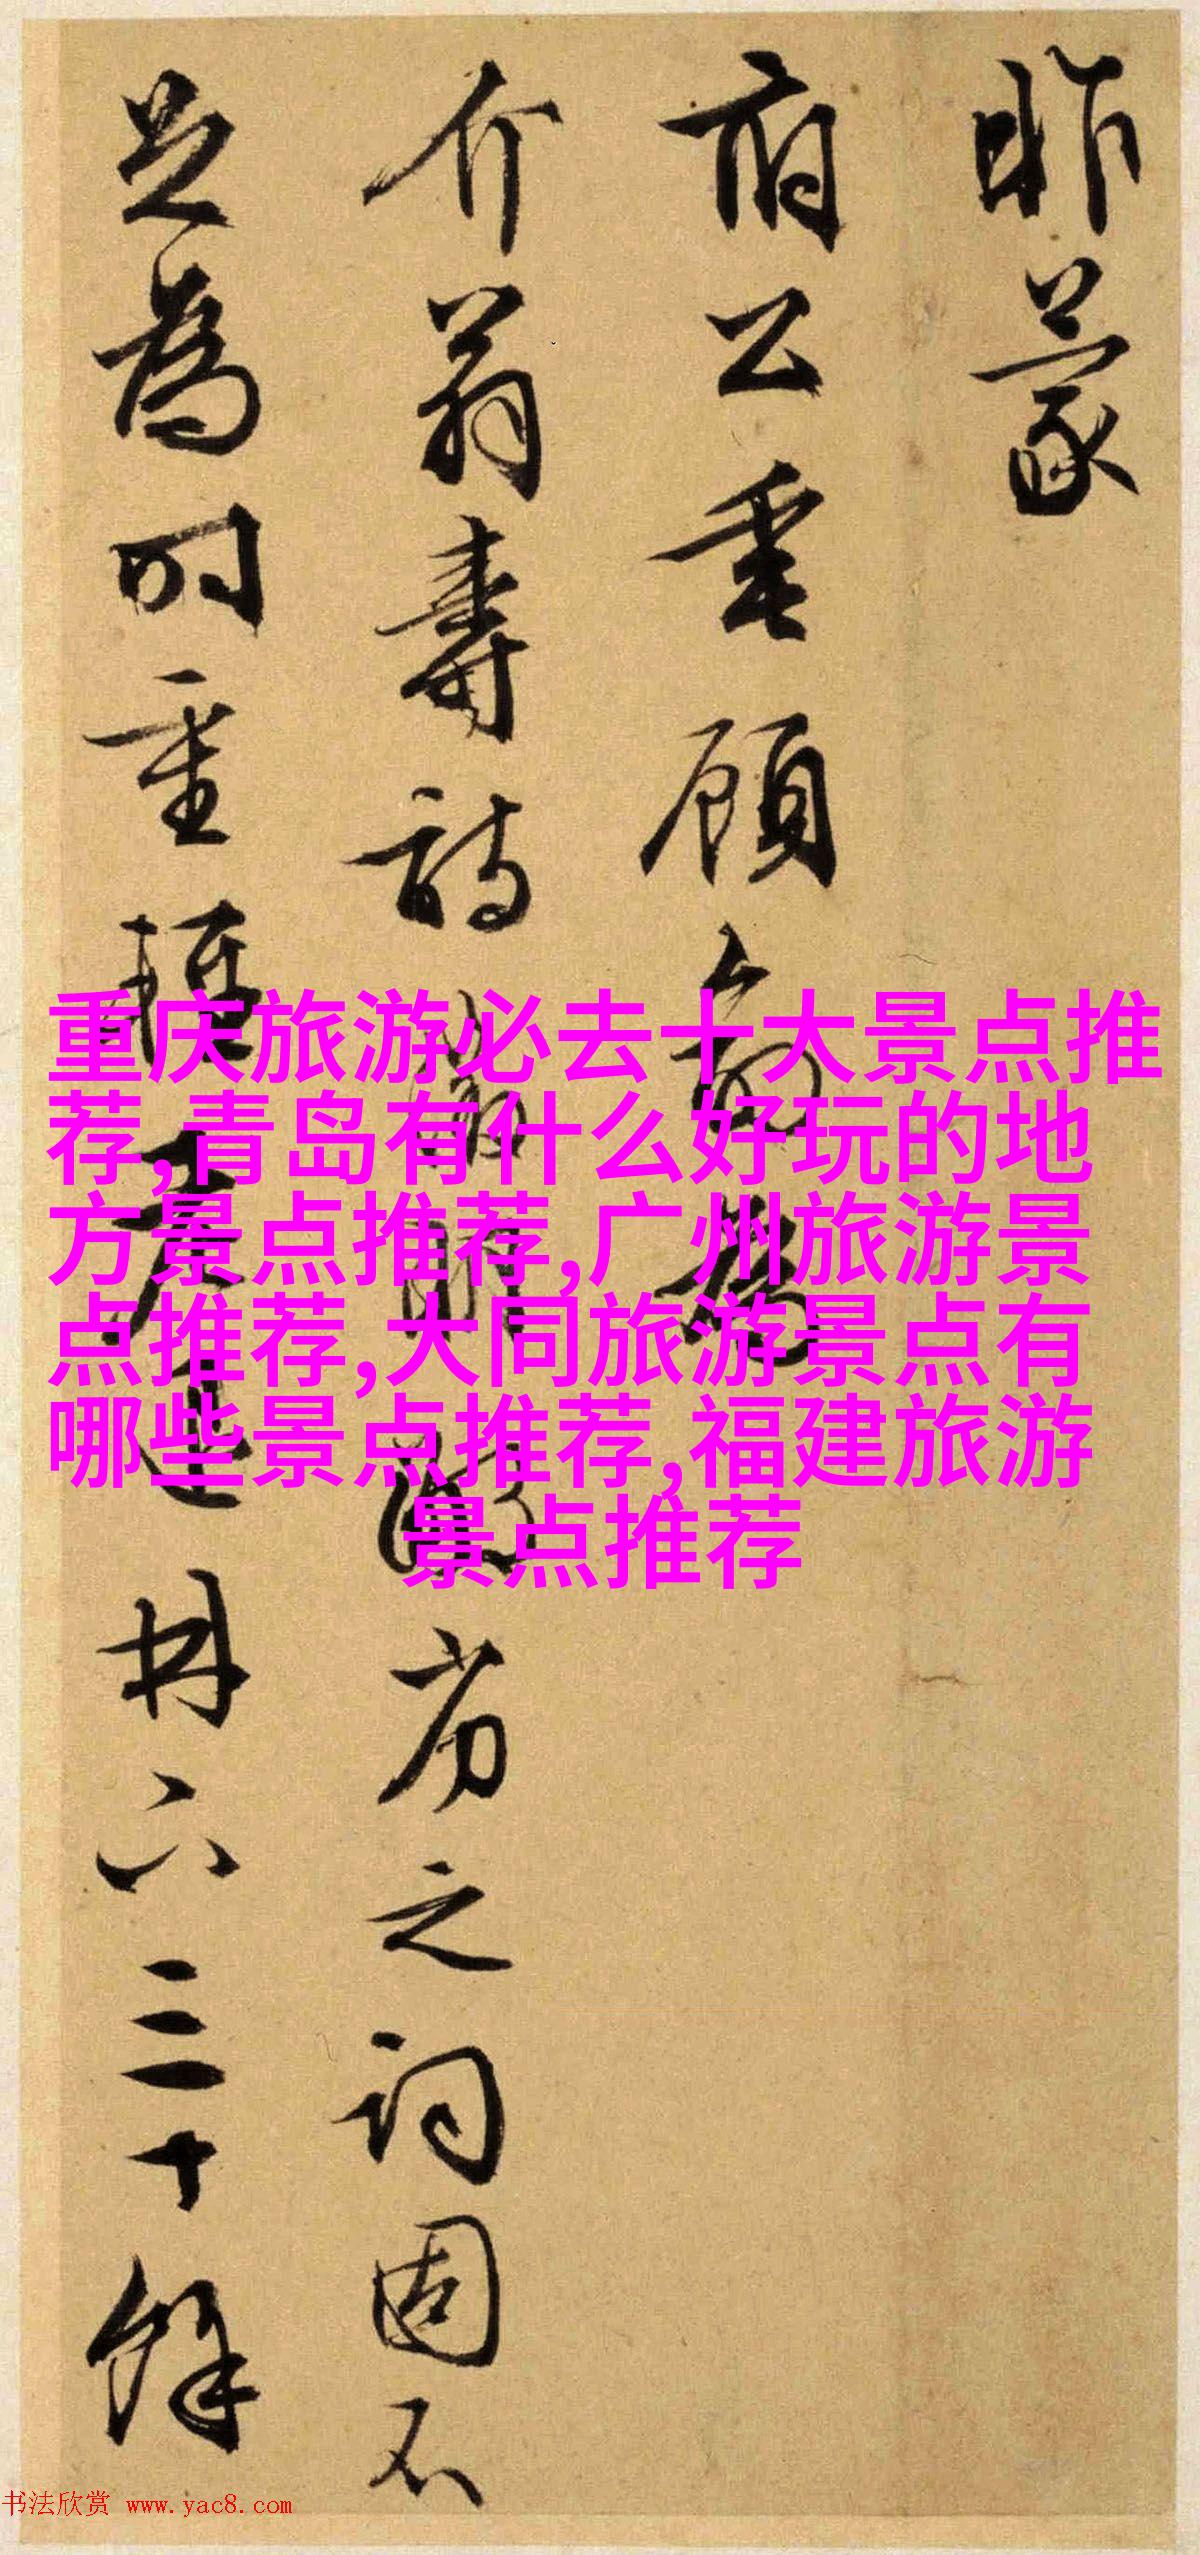 昨蒙
府公垂顧
介翁壽詩之詞固不
足為時重輕林下三十餘
重庆旅游必去十大景点推
荐,青岛有什么好玩的地
方景点推荐,广州旅游景
点推荐,大同旅游景点有
哪些景点推荐,福建旅游
景点推荐
书法欣赏 www.yac8.com